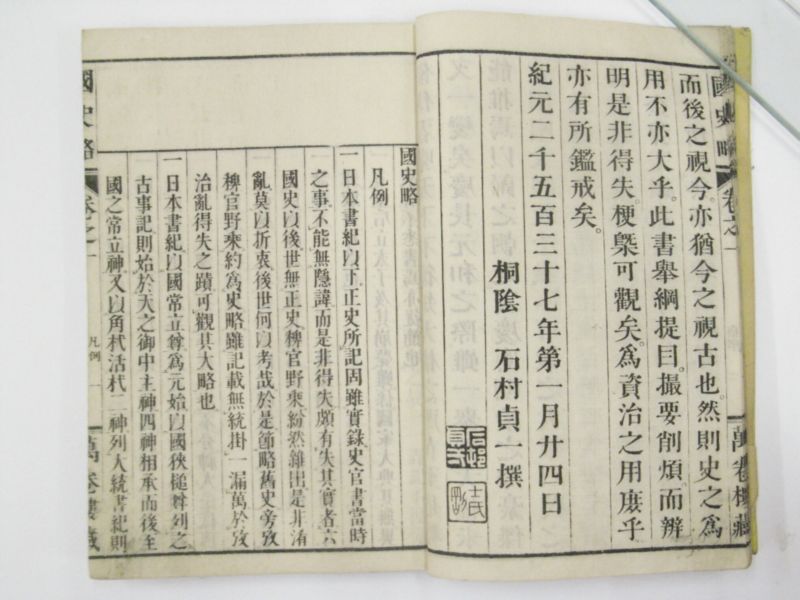 國史略 卷之一 萬卷樓藏
而後之視今亦猶今之視古也然則史之爲
用不亦大乎此書舉綱提目撮要削煩而辨
明是非得失梗槩可觀矣爲資治之用庶乎
亦有所鑑戒矣
紀元二千五百三十七年第一月廿四日
桐陰 石村貞一撰
國史略
凡例
一日本書紀以下正史所記固雖實錄史官書當時
之事不能無隱諱而是非得失頗有失其實者六
國史以後世無正史稗官野乘紛然雜出是非淆
亂莫以折衷後世何以考哉於是節略舊史旁攷
稗官野乘約爲史略雖記載無統掛一漏萬於攷
治亂得失之蹟可觀其大略也
一日本書紀以國常立尊爲元始以國狹槌尊列之
古事記則始於天之御中主神四神相承而後至
國之常立神又以角杙活杙二神列入統書紀則
國史略 卷之一 凡例 一 萬卷樓藏